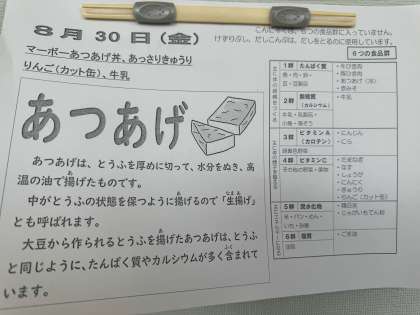 ８月３０日（金）
マーボーあつあげ丼、あっさりきゅうり
りんご（カット缶）、牛乳
は、６つの食品群に入っていません。
けずりぶし、だしこんぶは、だしをとるのに使用しています。
あつあげ
あつあげは、とうふを厚めに切って、水分をぬき、高
温の油で揚げたものです。
中がとうふの状態を保つように揚げるので「生揚げ」
とも呼ばれます。
大豆から作られるとうふを揚げたあつあげは、とうふ
と同じように、たんぱく質やカルシウムが多く含まれて
います。
６つの食品群
１群 たんぱく質
魚・肉・卵・
豆・豆製品
２群 無機質
（カルシウム）
・牛乳
牛乳・乳製品・
小魚・海そう
３群 ビタミンＡ
（カロテン）
緑黄色野菜
・にんじん
・にら
４群 ビタミンＣ
その他の野菜・果物
・たまねぎ
・なす
・しょうが
・にんにく
・きゅうり
・りんご（カット缶）
５群 炭水化物
米・パン・めん・
いも・砂糖
・精白米
・じゃがいもでん粉
６群 脂質
油脂
・ごま油